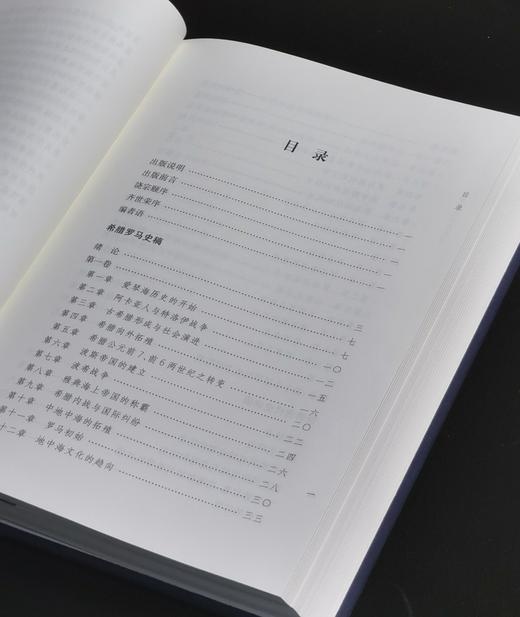 目录
出版说明 一
出版前言 一
饶宗颐序 一
齐世荣序 一
编者语 一
希腊罗马史稿
绪论 三
第一卷 七
第一章 爱琴海历史的开始 七
第二章 阿卡亚人与特洛伊战争 一〇
第三章 古希腊形成与社会演进 一二
第四章 希腊向外拓殖 一五
第五章 希腊公元前7、前6两世纪之转变 一六
第六章 波斯帝国的建立 二〇
第七章 波希战争 二二
第八章 雅典海上帝国的称霸 二四
第九章 希腊内战与国际纠纷 二六
第十章 中地中海的拓殖 二八
第十一章 罗马初始 三〇
十二章 地中海文化的趋向 三三
目录
一